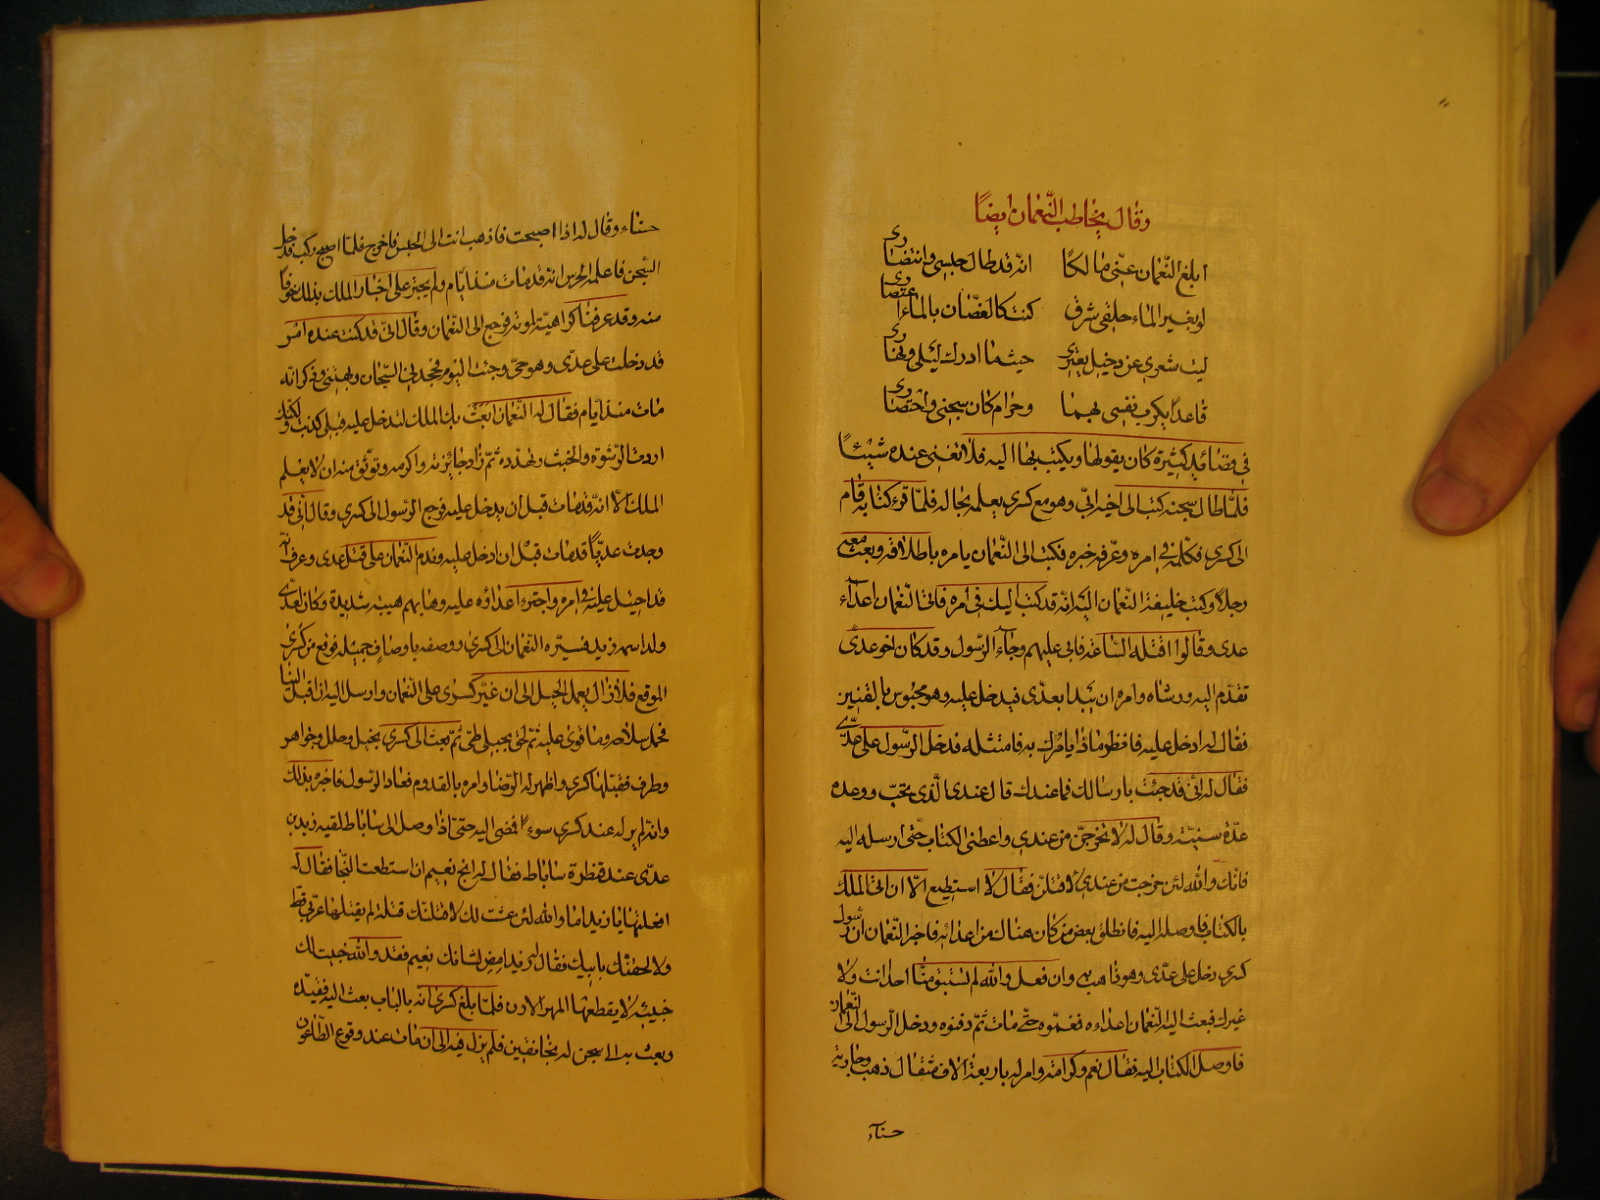 وقال يخاطب النّعمان ايضاً
ابلغ النّعمان عنّي مالكاً انّه قد طال حبسي وانتضاري
لو بغير الماء حلقي شرق كنت كالغصّان بالماء اعتصاري
ليت شعري عن دخيل يعتري حيثما ادرك ليلي ونهاري
قاعداً يكرب نفسي بهما وحرام كان سجني واحتضاري
في قصائد كثيرة كان يقولها ويكتب بها اليه فلا تغني عنده شيئاً
فلمّا طال سجنه كتب الى اخيه ابيّ وهو مع كسرى يعلمه بحاله فلمّا قرء كتابه قام
الى كسرى فكلّمه في امره وعرّفه خبره فكتب الى النّعمان يامره باطلاقه وبعث معه
رجلاً وكتب خليفة النّعمان اليه انّه قد كتب اليك في امره فاتى النّعمان اعداء
عدى وقالوا اقتله السّاعة فابى عليهم وجاء الرّسول وقد كان اخو عدىّ
تقدّم اليه ورشاه وامره ان يبدا بعدّي فيدخل عليه وهو محبوس بالصنين
فقال له ادخل عليه فانظر ماذا يامرك به فامتثله فدخل الرّسول على عدّي
فقال له انّي قد جئت بارسالك فما عندك قال عندي الّذي تحبّ ووعده
عدّة سنيّة وقال له لا تخرجنّ من عندي واعطني الكتاب حتّى ارسله اليه
فانّك والله لئن خرجت من عندي لاقتلنّ فقال لا استطيع الّا ان اتى الملك
بالكتاب فاوصله اليه فانطلق بعض من كان هناك من اعدائه فاخبر النّعمان ان رسول
كسرى دخل على عدّي وهو ذاهب به وان فعل والله لم يستبق منّا احدا انت ولا
غيرك فبعث اليه النّعمان اعداءه فغمّوه حتّى مات ثمّ دفنوه ودخل الرّسول الى النّعمان
فاوصل الكتاب اليه فقال نعم وكرامة وامر له باربعة الاف مثقال ذهب وجارية
حسناء
حسناء وقال له اذا اصبحت فاذهب انت الى الحبس فاخرج فلمّا اصبح ركب فدخل
السّجن فاعلمه الحرس انه قد مات منذ ايّام ولم يجتر على اخبار الملك بذلك خوفا
منه وقد عرفنا كراهيته لموته فرجع الى النّعمان وقال انّي قد كنت عنده امس
قد دخلت على عدّى وهو حيّ وجئت اليوم فجحدني السّجان وبهتني وذكر انّه
مات منذ ايام فقال له النّعمان ابعث بك الملك لتدخل عليه قبلي كذبت ولكنّك
اردت الرّشوة والخبث وتهدده ثمّ زاد جائزته واكرمه وتوثّق منه ان لا يعلم
الملك الّا انّه قد مات قبل ان يدخل عليه فرجع الرّسول الى كسرى وقال انّي قد
وجدت عديّاً قد مات قبل ان ادخل عليه وندم النّعمان على قتل عدى وعرف انّه
قد احتيل عليه في امره واجترء اعداؤه عليه وهابهم هيبة شديدة وكان لعدّى
ولد اسمه زيد فسيّره النّعمان الى كسرى ووصفه باوصاف جميلة فوقع من كسرى
الموقع فلا زال يعمل الحيل الى ان غيّر كسرى على النّعمان وارسل اليه ان اقبل الينا
فحمل سلاحه وما قوى عليه ثمّ لحق بجبلي طيّ ثمّ بعث الى كسرى بخيل وحلل وجواهر
وطرف فقبلها كسرى واظهر له الرّضا وامره بالقدوم فعاد الرّسول فاخبره بذلك
وانّه لم ير له عند كسرى سوءً فمضى اليه حتّى اذا وصل الى ساباط لقيه زيد بن
عدّى عند قنطرة ساباط فقال له انج نعيم ان استطعت النّجا فقال له
افعلتها يا زيد اما والله لئن عشت لك لاقتلنّك قتلة لم يقتلها عربّي قطّ
ولالحقنّك بابيك فقال له زيد امض لشانك نعيم فقد والله خبيت لك
خبيئة لا يقطعها المهر الارن فلمّا بلغ كسرى انّه بالباب بعث اليه فقيّده
وبعث به الى سجن له بخانقين فلم يزل فيه الى ان مات عند وقوع الطّاعون